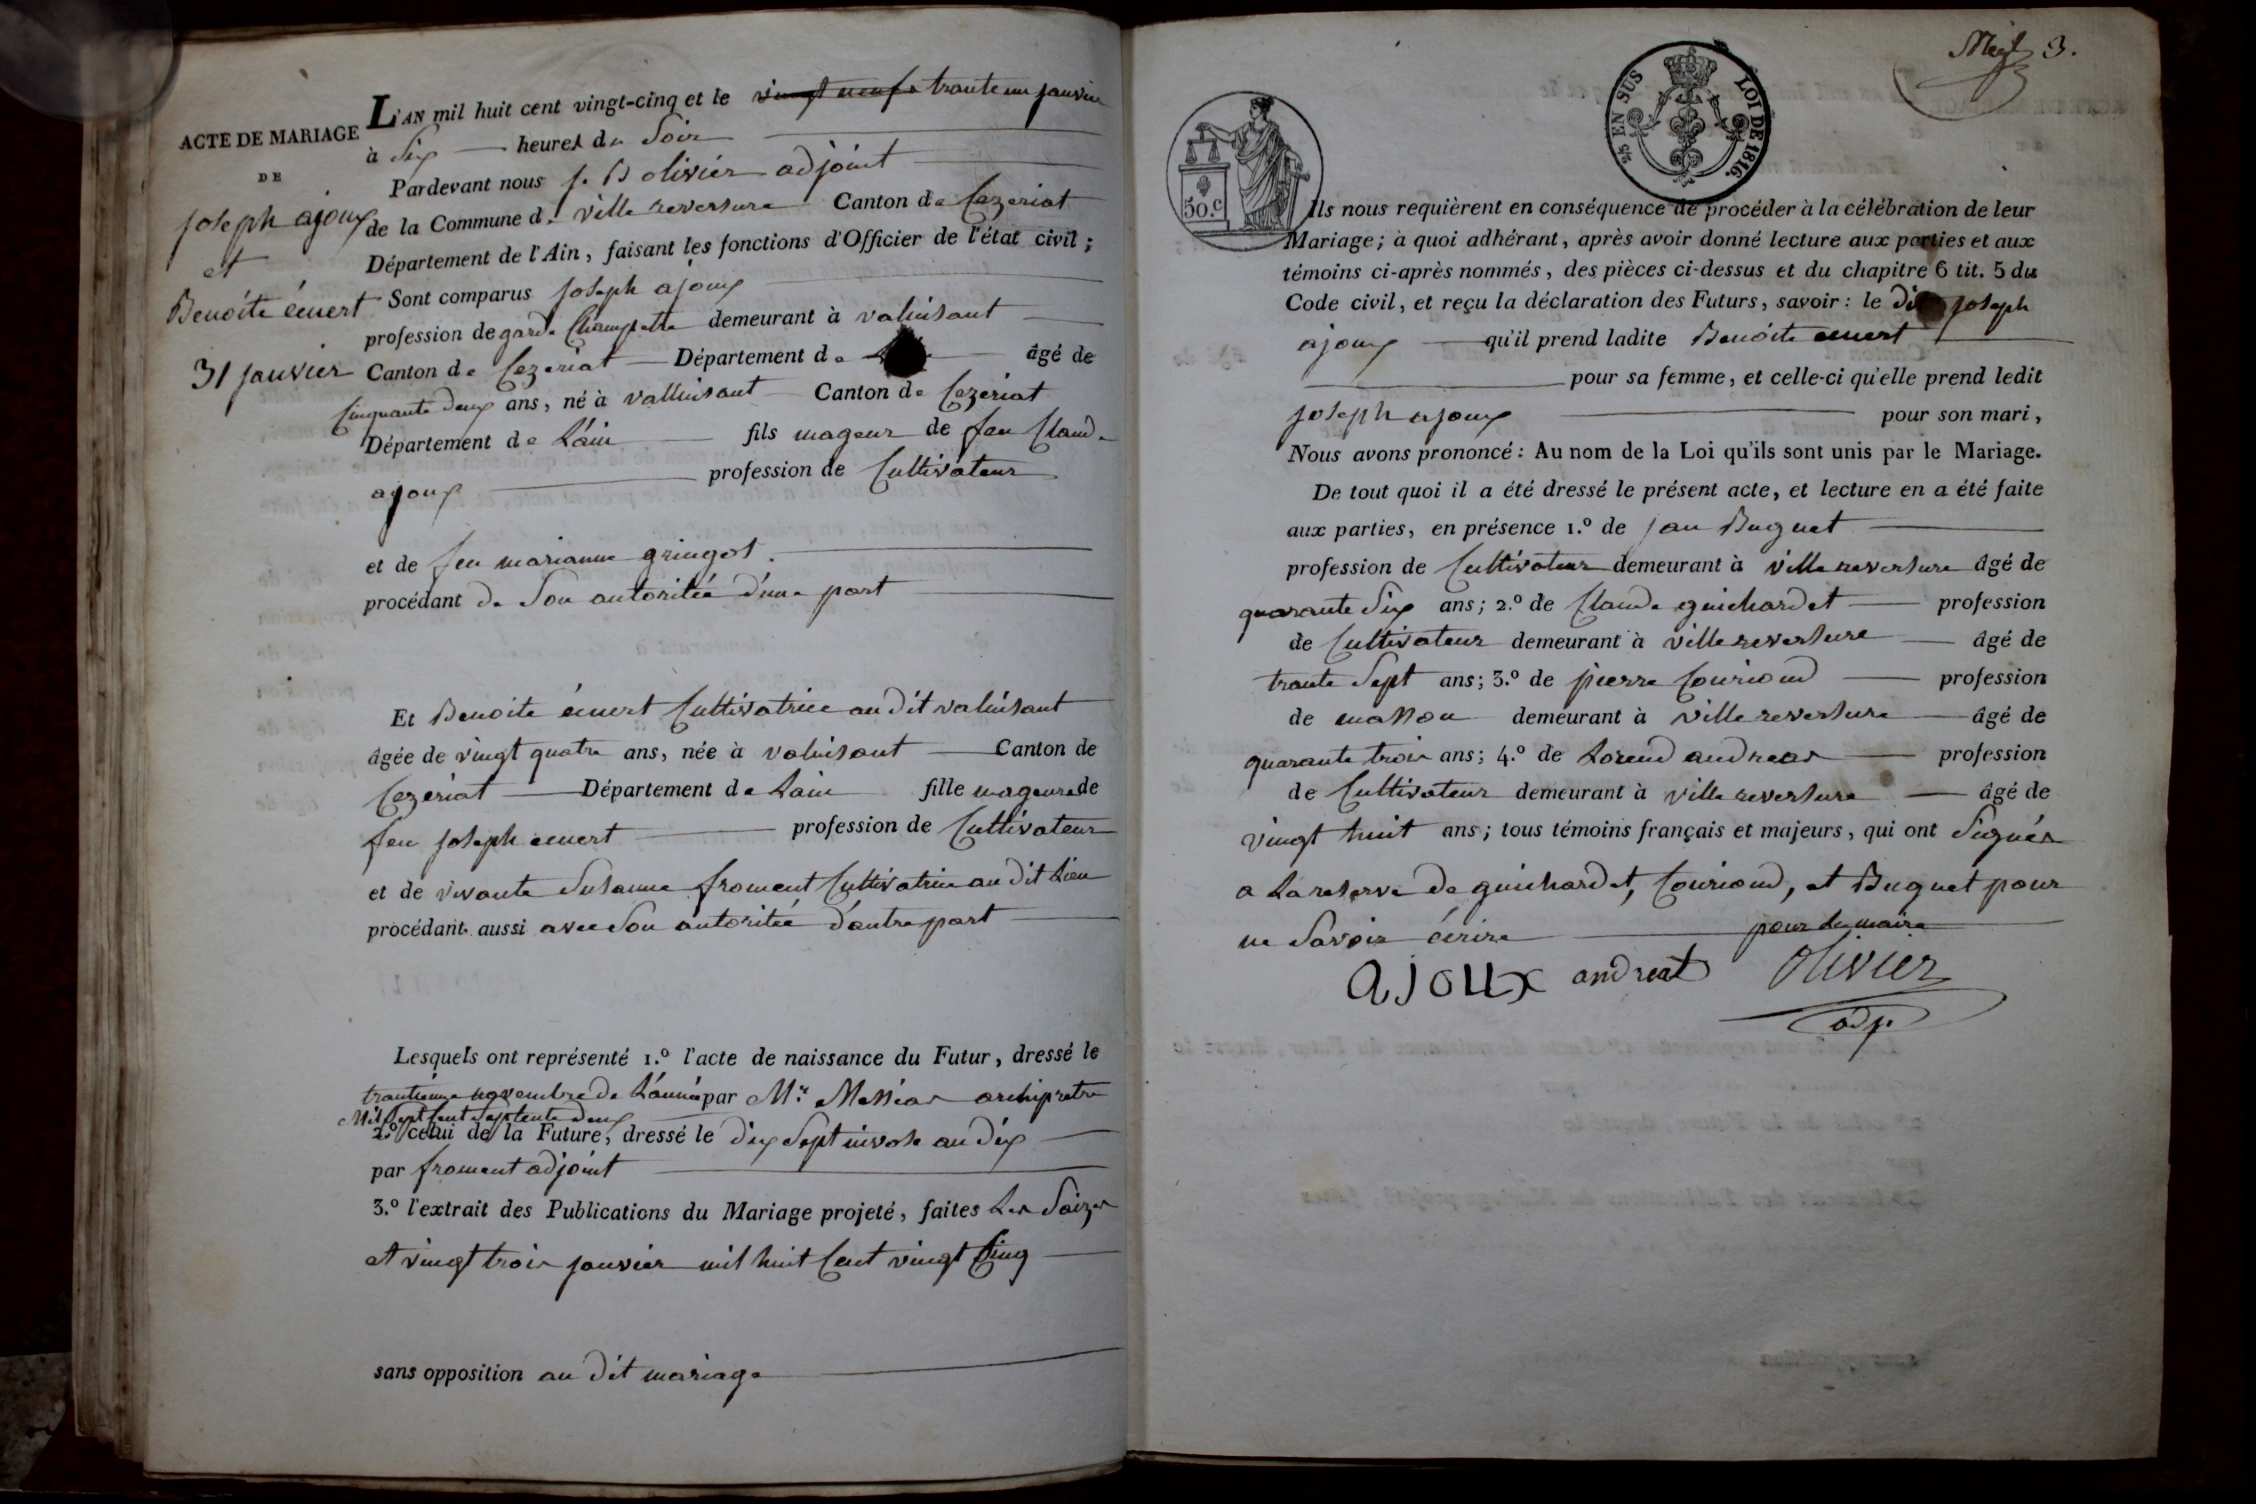 ACTE DE MARIAGE
DE
joseph ajoux
et
Benoite émert
31 janvier
L'AN mil huit cent vingt-cinq et le vingt neufe trante un janvier
à Six heures du Soir
Pardevant nous j. B olivier adjoint
de la Commune de ville reversure Canton de Cezeriat
Département de l'Ain, faisant les fonctions d'Officier de l'état civil;
Sont comparus joseph ajoux
profession de garde Champetre demeurant à valuisant
Canton de Cezeriat Département de âgé de
Cinquante deux ans, né à valluisant Canton de Cezeriat
Département de L'ain fils mageur de feu Claude
ajoux profession de Cultivateur
et de feu marianne gringot.
procédant de Son autoritée d'une part
Et Benoite émert Cultivatrice au dit valuisant
âgée de vingt quatre ans, née à valuisant Canton de
Cezeriat Département de Lain fille mageure de
feu joseph emert profession de Cultivateur
et de vivante Susanne froment Cultivatrice au dit Lieu
procédant aussi avec Son autoritée d'autre part
Lesquels ont représenté 1.º l'acte de naissance du Futur, dressé le
trantieme novembre de L'année par Mr. Messéar archipretre
Mil Sept Cent Septente deux
2.º celui de la Future, dressé le dix Sept nivose an dix
par froment adjoint
3.º l'extrait des Publications du Mariage projeté, faites Les Saize
et vingt trois janvier mil huit Cent vingt Cinq
sans opposition au dit mariage
3.
50.C
2/5 EN SUS LOI DE 1816.
Ils nous requièrent en conséquence de procéder à la célébration de leur
Mariage; à quoi adhérant, après avoir donné lecture aux parties et aux
témoins ci-après nommés, des pièces ci-dessus et du chapitre 6 tit. 5 du
Code civil, et reçu la déclaration des Futurs, savoir: le dit joseph
ajoux qu'il prend ladite Benoite emert
pour sa femme, et celle-ci qu'elle prend ledit
joseph ajoux pour son mari,
Nous avons prononcé: Au nom de la Loi qu'ils sont unis par le Mariage.
De tout quoi il a été dressé le présent acte, et lecture en a été faite
aux parties, en présence 1.º de jan Buguet
profession de Cultivateur demeurant à ville reversure âgé de
quarante Six ans; 2.º de Claude guichardet profession
de Cultivateur demeurant à ville reversure âgé de
trante Sept ans; 3.º de pierre Couriond profession
de masson demeurant à ville reversure âgé de
quarante trois ans; 4.º de Lorend andreas profession
de Cultivateur demeurant à ville reversure âgé de
vingt huit ans; tous témoins français et majeurs, qui ont Signés
a La reserve de guichardet, Couriond, et Buguet pour
ne Savoir écrire pour le maire
ajoux andreat Olivier
adj.